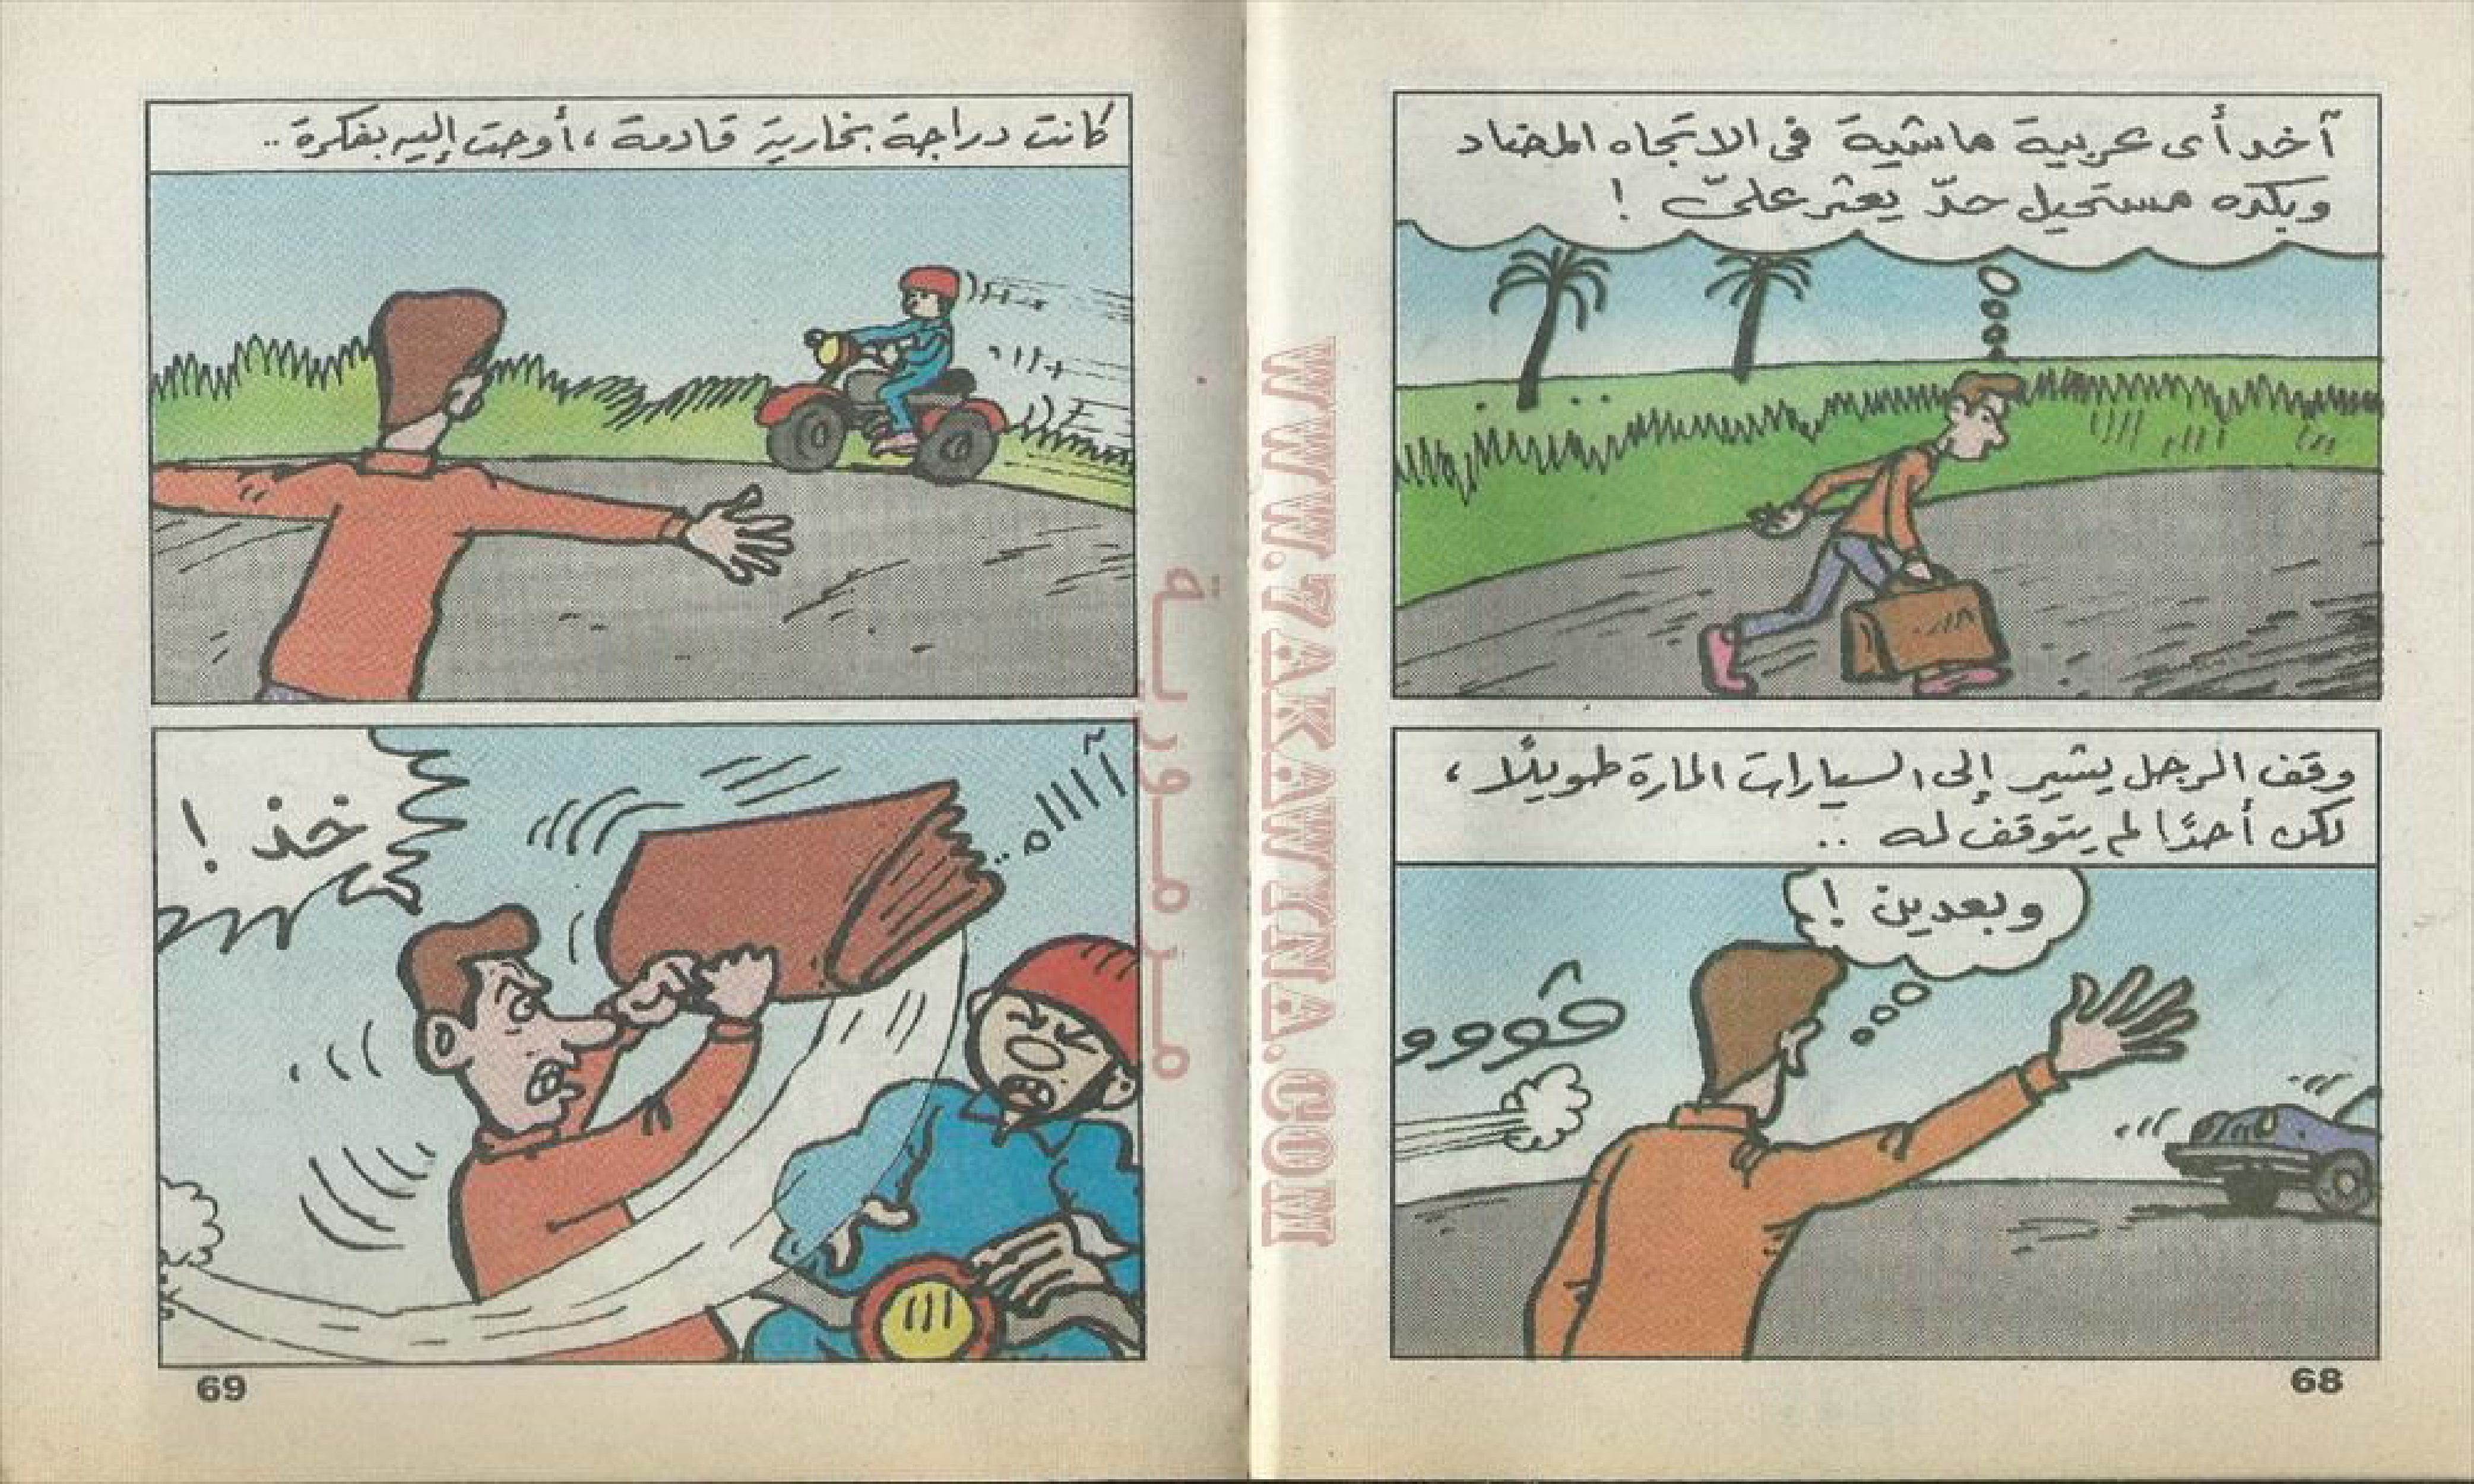 آخد أى عربية ماشية فى الاتجاه المضاد
وبكده مستحيل حدّ يعثر علىّ !
وقف الرجل يشير إلى السيارات المارة طويلًا ،
لكن أحدًا لم يتوقف له ..
وبعدين !
ڤووو
68
كانت دراجة بخارية قادمة ، أوحت إليه بفكرة ..
آااااه ..
خذ !
69
مــز مــوريــة
WWW.7AKAWYNA.COM